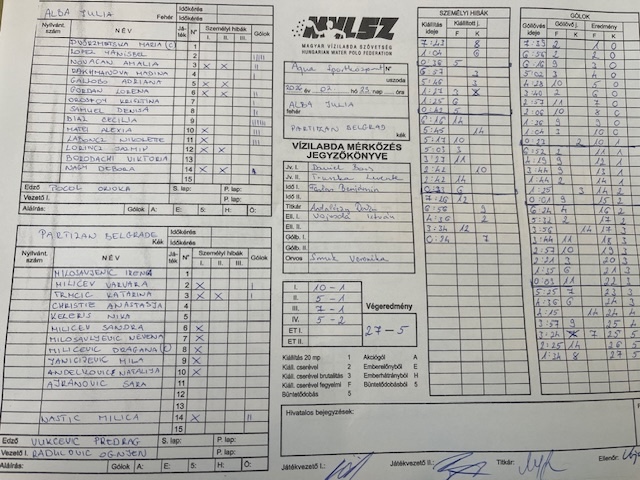 ALBA JULIA
Fehér
Időkérés
Időkérés
Nyilvánt. szám
NÉV
Játék
N°
Személyi hibák
I. II. III.
Gólok
DVORZHATSKA MARIA (C) 1
LOPEZ YANISBEL 2
NOVACAN AMALIA 3 X X
RAKHMANOVA MADINA 4
GALHOBO ADRIANA 5 X
GORDAN LORENA 6 X
KRISTINA 7
SAMUEL DENISA 8
DIAZ CECILIA 9
MATEI ALEXIA 10 X
NIKOLETE 11 X
12 X X
BORODACHI VIKTORIA 13
NAGY DEBORA 14 X X
15
Edző
S. lap:
P. lap:
Vezető I.
S. lap:
P. lap:
Aláírás:
Gólok
A:
E:
5:
H:
Ö:
PARTIZAN BELGRADE
Kék
Időkérés
Időkérés
Nyilvánt. szám
NÉV
Játék
N°
Személyi hibák
I. II. III.
Gólok
MILOSAVJENIC IRENA 1
MILICEV VARVARA 2 X
TRMCIC KATARINA 3 X X
CHRISTIE ANASTASJA 4
KERERIS NIKA 5
MILICEV SANDRA 6 X
MILOSAVLJEVIC NEVENA 7 X
MILICEVIC DRAGANA (C) 8 X
MILA 9 X
ANDELKOVIC NATALIJA 10 X
AJRANOVIC SARA 11
12
13
NASTIC MILICA 14 X
15
Edző VUKCEVIC PREDRAG
S. lap:
P. lap:
Vezető I. RADULOVIC OGNJEN
S. lap:
P. lap:
Aláírás:
Gólok
A:
E:
5:
H:
Ö:
MVLSZ
MAGYAR VÍZILABDA SZÖVETSÉG
HUNGARIAN WATER POLO FEDERATION
Aqua Sportközpont
uszoda
év 02. hó nap óra
ALBA JULIA
fehér
PARTIZAN BELGRAD
kék
VÍZILABDA MÉRKŐZÉS
JEGYZŐKÖNYVE
Jv. I.
Jv. II.
Idő I. Benjámin
Idő II.
Titkár
Ell. I. Vajvoda István
Ell. II.
Gólb. I.
Gólb. II.
Orvos Simák Veronika
I. 10-1
II. 5-1
III. 7-1
IV. 5-2
ET I.
ET II.
Végeredmény
27-5
Kiállítás 20 mp 1
Kiáll. cserével 2
Kiáll. cserével brutalitás 3
Kiáll. cserével fegyelmi F
Büntetődobás 5
Akciógól A
Emberelőnyből E
Emberhátrányból H
Büntetődobásból 5
SZEMÉLYI HIBÁK
Kiállítás ideje
Kiállított j.
F K
7:43 8
1:04 6
0:36 5
6:57 3
5:46 3
1:17 3
1:25 6
0:42 5
6:16 14
5:45 14
5:17 10
5:03 3
3:23 11
2:42 10
2:42 12
1:44 14
0:31 6
7:26 12
6:56 9
4:36 2
3:34 12
0:34 7
GÓLOK
Góllövés ideje
Góllövő
F K
Eredmény
F K
7:39 2 1 0
6:56 2 2 0
6:16 9 3 0
5:02 3 4 0
4:28 10 5 0
3:40 2 6 0
2:57 11 7 0
2:06 8 0
1:26 9 9 0
1:04 3 10 0
2 10 1
6:52 2 11 1
4:19 9 12 1
3:33 9 13 1
1:44 2 14 1
1:25 3 14 2
0:01 9 15 2
6:24 4 16 2
5:32 2 17 2
3:56 14 17 3
3:44 11 18 3
2:57 10 19 3
2:21 3 20 3
1:35 6 21 3
0:03 11 22 3
5:25 7 23 3
4:36 6 24 3
4:15 14 24 4
3:57 9 25 4
3:24 7 25 5
2:25 14 26 5
1:24 8 27 5
Hivatalos bejegyzések:
Játékvezető I.:
Játékvezető II.:
Titkár:
Ellenőr: